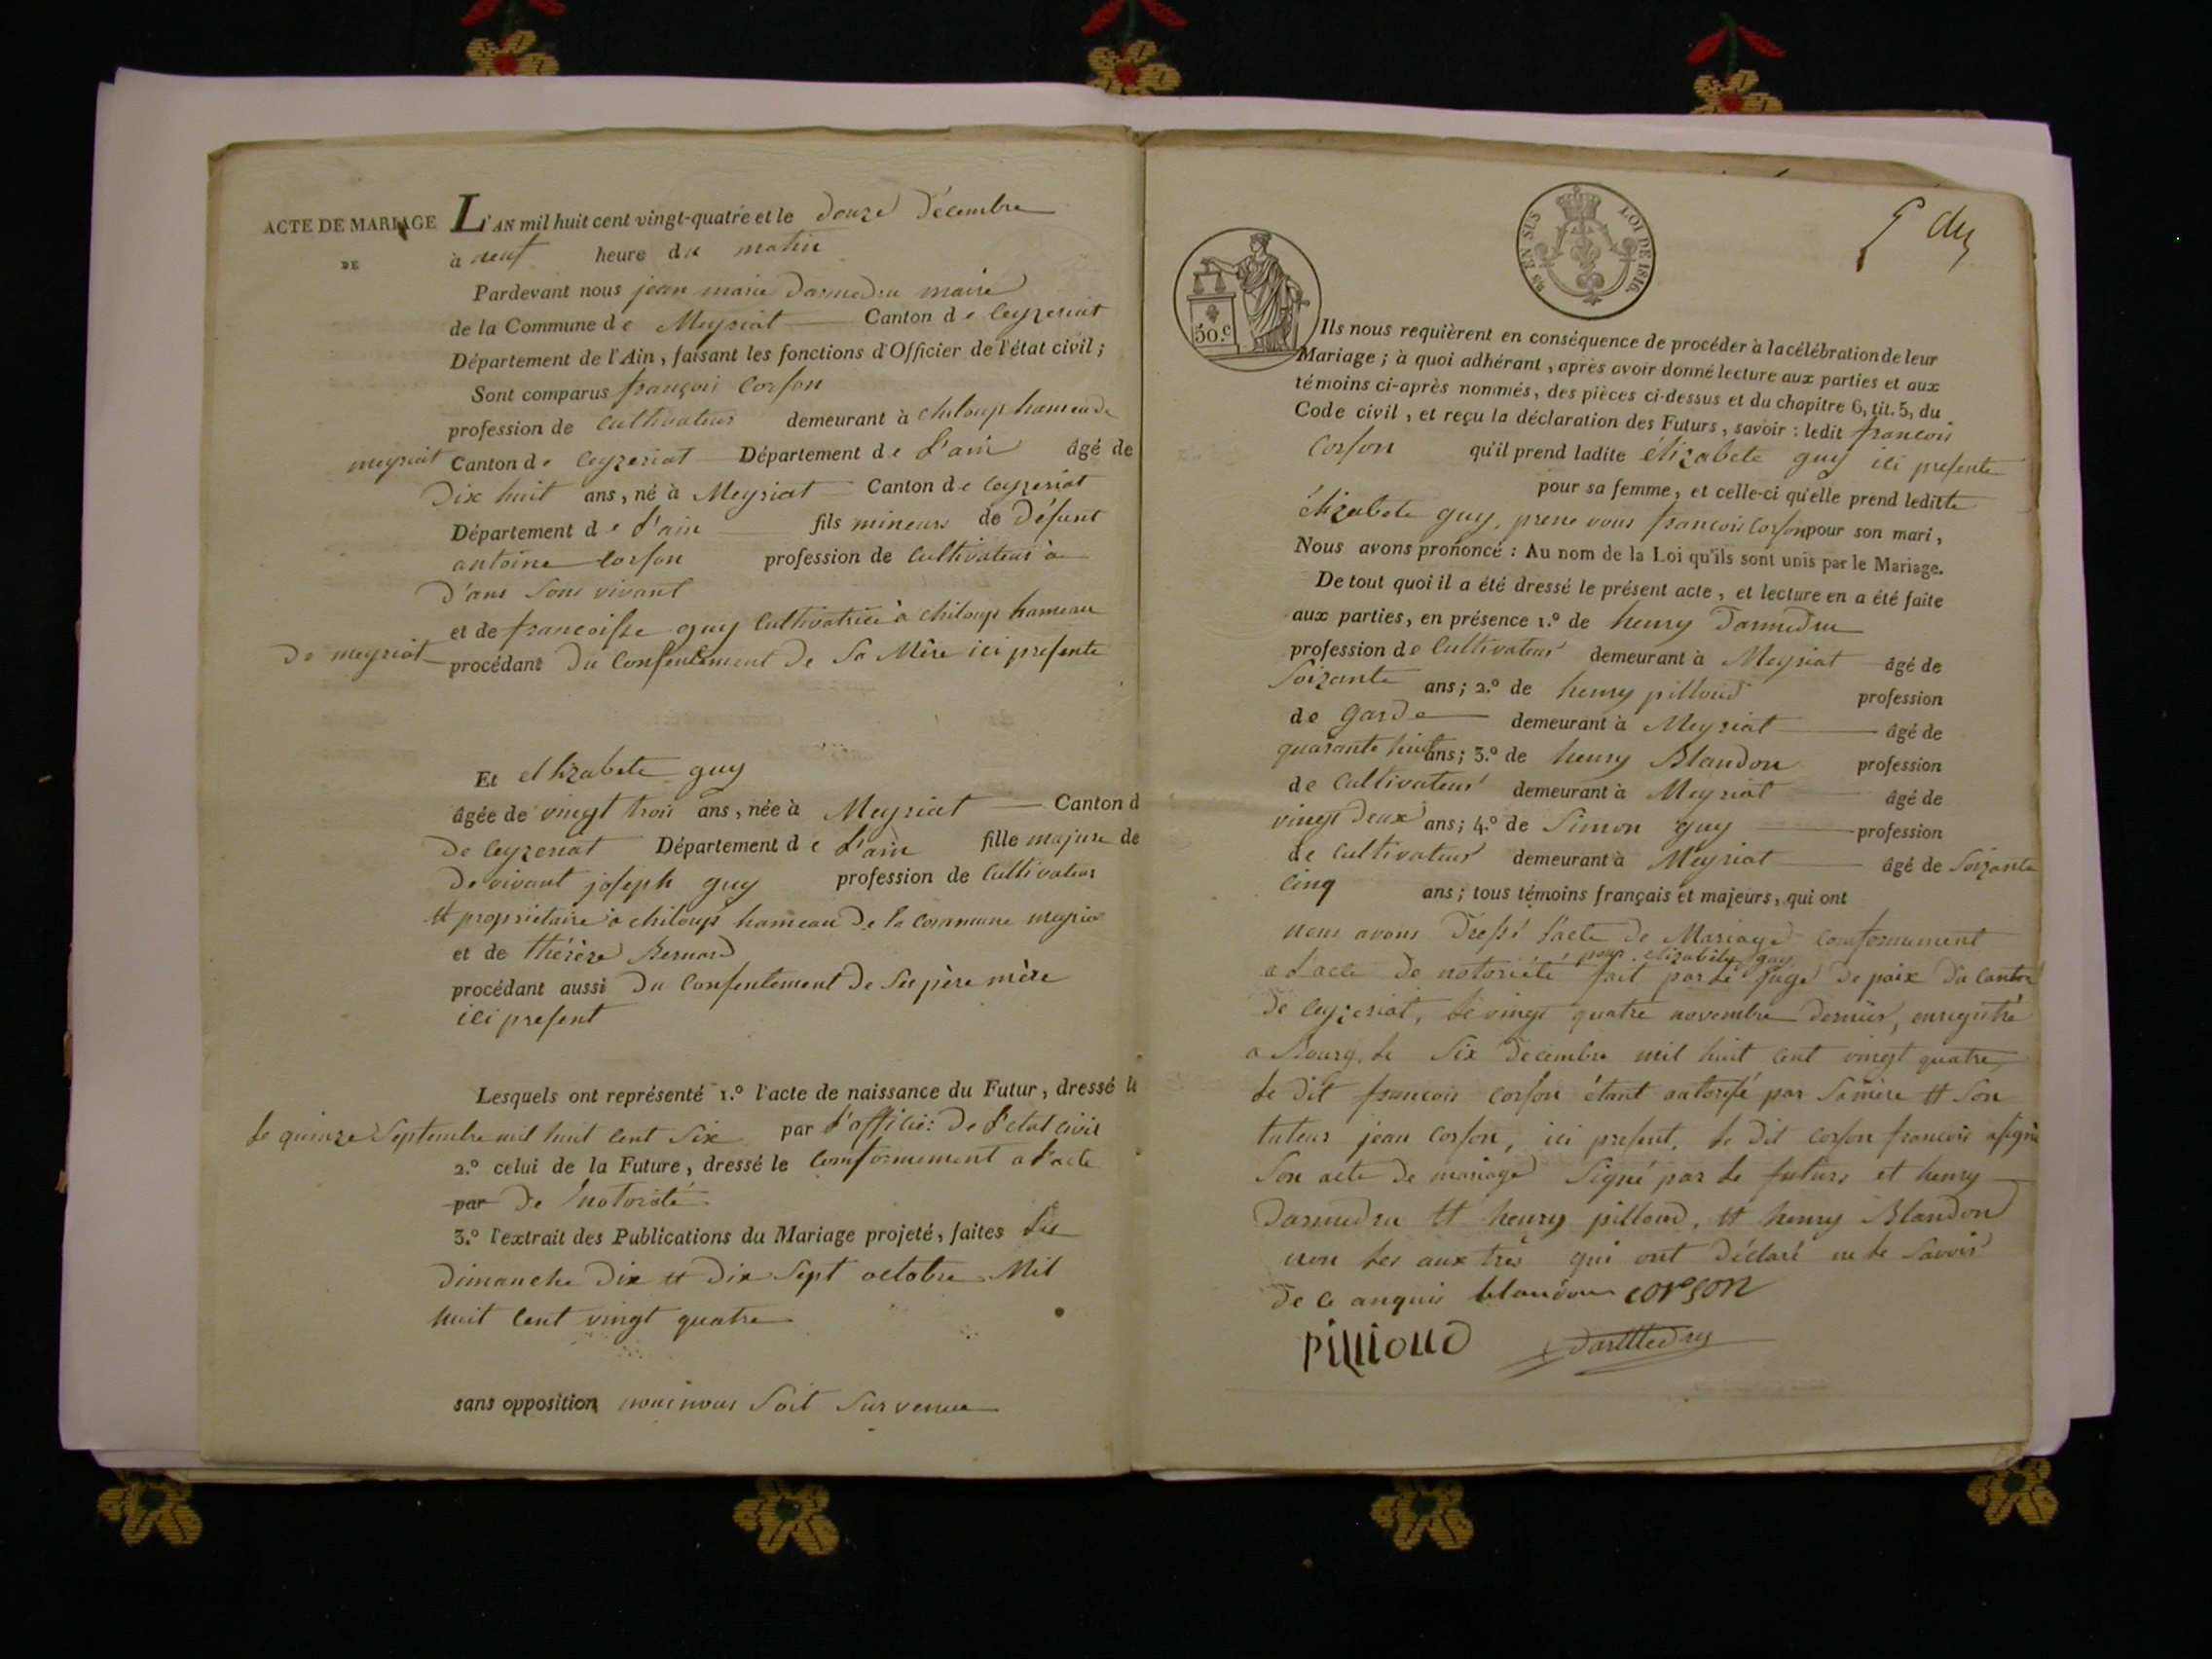 ACTE DE MARIAGE
DE
L'AN mil huit cent vingt-quatre et le douze décembre
à neuf heure du matin
Pardevant nous jean marie darmedru maire
de la Commune de Meyriat Canton de Ceyzeriat
Département de l'Ain, faisant les fonctions d'Officier de l'état civil ;
Sont comparus françois Corson
profession de Cultivateur demeurant à chiloup hameau de
meyriat Canton de Ceyzeriat Département de L'ain âgé de
Dix huit ans, né à Meyriat Canton de Ceyzeriat
Département de L'ain fils mineurs de Défunt
antoine Corson profession de Cultivateur à
Sons vivant
et de francoisse guy Cultivatrice à chiloup hameau
De meyriat procédant Du Consentement De Sa Mère ici presente
Et elizabete guy
âgée de vingt trois ans, née à Meyriat Canton d
De Ceyzeriat Département de L'ain fille majure de
De vivant joseph guy profession de Cultivateur
et propriétaire à chiloup hameau De la Commune meyria
et de thérèze Bernard
procédant aussi Du Consentement De Ses père mère
ici present
Lesquels ont représenté 1.º l'acte de naissance du Futur, dressé le
le quinze Septembre mil huit Cent Six par L'officier De L'etat civil
2.º celui de la Future, dressé le Comformement a L'acte
par De notorété
3.º l'extrait des Publications du Mariage projeté, faites Les
Dimanche Dix et Dix Sept octobre Mil
huit Cent vingt quatre
sans opposition nous Soit Survenue
EN SUS
LOI DE 1816
50.c
Ils nous requièrent en conséquence de procéder à la célébration de leur
Mariage ; à quoi adhérant, après avoir donné lecture aux parties et aux
témoins ci-après nommés, des pièces ci-dessus et du chapitre 6, tit. 5, du
Code civil, et reçu la déclaration des Futurs, savoir : ledit francois
Corson qu'il prend ladite élizabete guy ici presente
pour sa femme, et celle-ci qu'elle prend leditte
élizabete guy, prene vous francois Corson pour son mari,
Nous avons prononcé : Au nom de la Loi qu'ils sont unis par le Mariage.
De tout quoi il a été dressé le présent acte, et lecture en a été faite
aux parties, en présence 1.º de henry Darmedru
profession de Cultivateur demeurant à Meyriat âgé de
Soizante ans ; 2.º de henry pilloud profession
de garde demeurant à Meyriat âgé de
quarante huit ans ; 3.º de henry Blandon profession
de Cultivateur demeurant à Meyriat âgé de
vingt deux ans ; 4.º de Simon guy profession
de Cultivateur demeurant à Meyriat âgé de Soizante
Cinq ans ; tous témoins français et majeurs, qui ont
nous avons Dressé L'acte De Mariage Comformement
pour elizabete guy
a L'acte De notoriété fait par Le juge De paix Du Canton
De Ceyzeriat, Le vingt quatre novembre Dernier, enregitré
a Bourg, Le Six Decembre mil huit Cent vingt quatre
Le Dit francois Corson étant autorisé par Sa mère et Son
tuteur jean Corson, ici present, Le Dit Corson francois asigné
Son acte De mariage Signé par Le futurs et henry
Darmedru et henry pilloud, et henry Blandon
non Les aux tres qui ont Déclaré ne Le Savoir
De Ce anquis blandon corson
Pillioud Darmedru